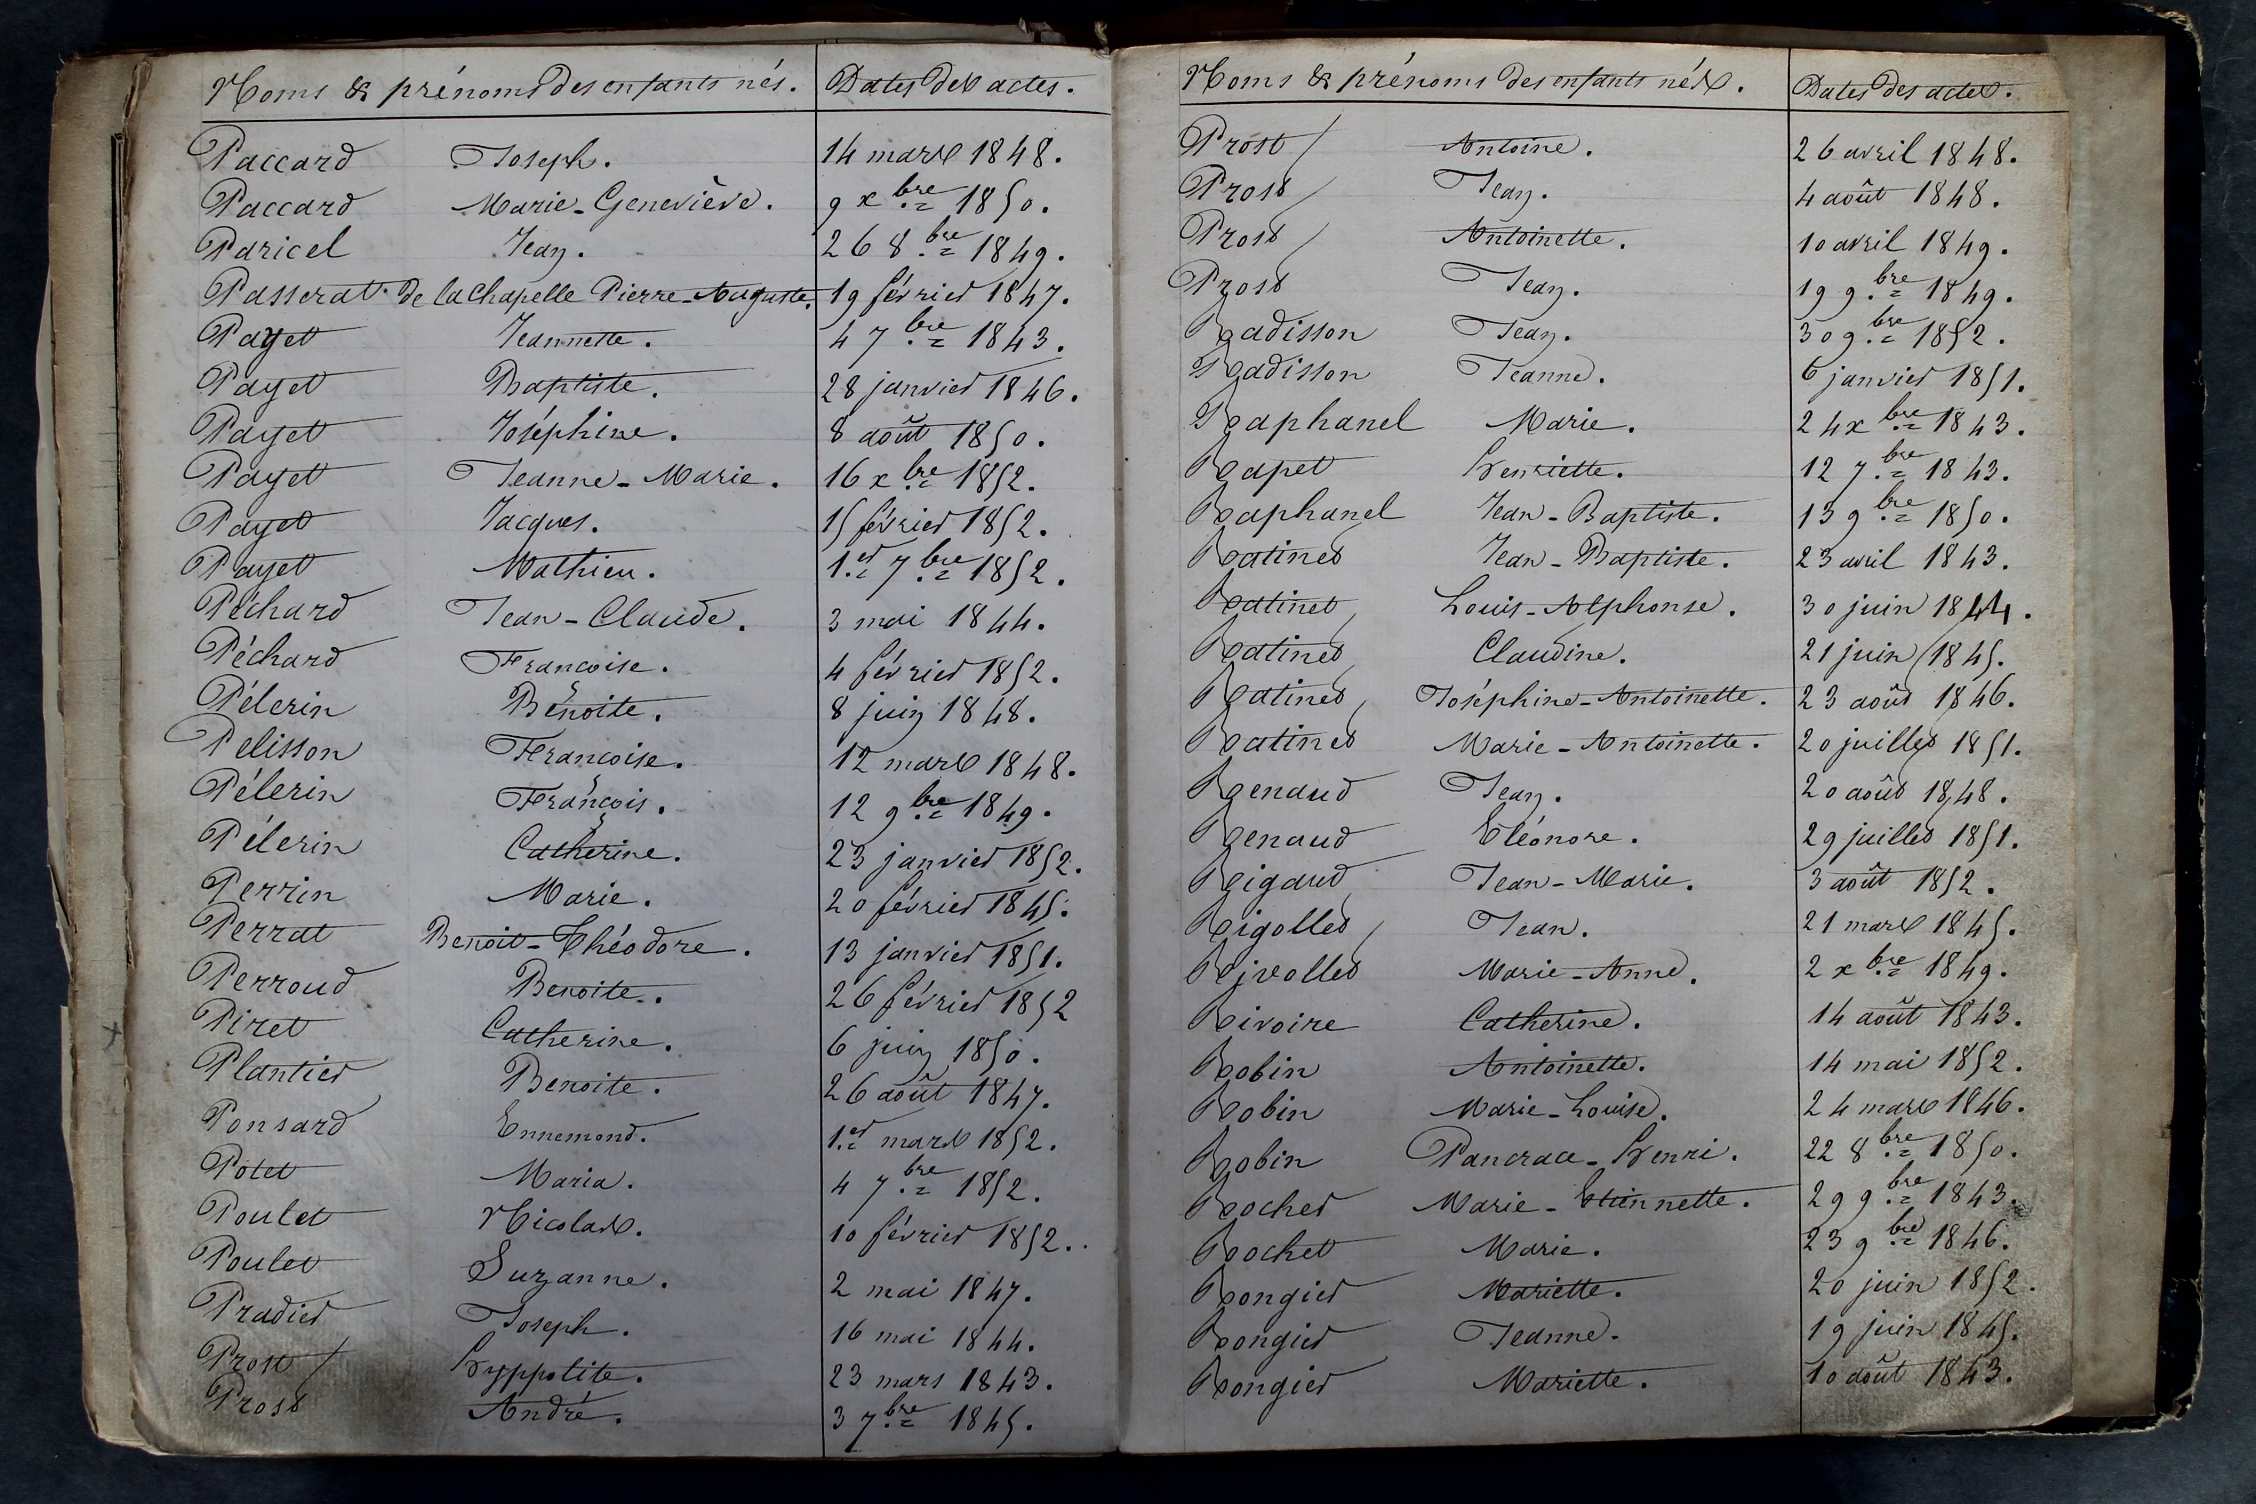 Noms & prénoms des enfants nés. Dates des actes.
Paccard Joseph. 14 mars 1848.
Paccard Marie-Geneviève. 9 xbre 1850.
Paricel Jean. 26 8.bre 1849.
Passerat de la Chapelle Pierre-Auguste. 19 février 1847.
Payet Jeannette. 4 7.bre 1843.
Payet Baptiste. 28 janvier 1846.
Payet Joséphine. 8 août 1850.
Payet Jeanne-Marie. 16 xbre 1852.
Payet Jacques. 15 février 1852.
Payet Mathieu. 1.er 7.bre 1852.
Péchard Jean-Claude. 3 mai 1844.
Péchard Françoise. 4 février 1852.
Pélerin Benoite. 8 juin 1848.
Pelisson Françoise. 12 mars 1848.
Pélerin François. 12 9.bre 1849.
Pélerin Catherine. 23 janvier 1852.
Perrin Marie. 20 février 1845.
Perrat Benoit-Théodore. 13 janvier 1851.
Perroud Benoite. 26 février 1852
Piret Catherine. 6 juin 1850.
Plantier Benoite. 26 août 1847.
Ponsard Ennemond. 1.er mars 1852.
Potet Maria. 4 7.bre 1852.
Poulet Nicolas. 10 février 1852.
Poulet Suzanne. 2 mai 1847.
Pradier Joseph. 16 mai 1844.
Prost Hyppolite. 23 mars 1843.
Prost André. 3 7.bre 1845.
Noms & prénoms des enfants nés. Dates des actes.
Prost Antoine. 26 avril 1848.
Prost Jean. 4 août 1848.
Prost Antoinette. 10 avril 1849.
Prost Jean. 19 9.bre 1849.
Radisson Jean. 30 9.bre 1852.
Radisson Jeanne. 6 janvier 1851.
Raphanel Marie. 24 xbre 1843.
Rapet Henriette. 12 7.bre 1843.
Raphanel Jean-Baptiste. 13 9.bre 1850.
Ratinet Jean-Baptiste. 23 avril 1843.
Ratinet Louis-Alphonse. 30 juin 1844.
Ratinet Claudine. 21 juin 1845.
Ratinet Joséphine-Antoinette. 23 août 1846.
Ratinet Marie-Antoinette. 20 juillet 1851.
Renaud Jean. 20 août 1848.
Renaud Eléonore. 29 juillet 1851.
Rigaud Jean-Marie. 3 août 1852.
Rigollet Jean. 21 mars 1845.
Rivollet Marie-Anne. 2 xbre 1849.
Rivoire Catherine. 14 août 1843.
Robin Antoinette. 14 mai 1852.
Robin Marie-Louise. 24 mars 1846.
Robin Pancrace-Henri. 22 8.bre 1850.
Rochet Marie-Etiennette. 29 9.bre 1843.
Rochet Marie. 23 9.bre 1846.
Rongier Mariette. 20 juin 1852.
Rongier Jeanne. 19 juin 1845.
Rongier Mariette. 10 août 1843.